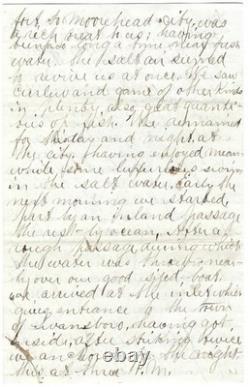 fort, to Moorehead city, was
a rich treat to us; having
been so long a time away from
water the salt air seemed
to revive us at once. We saw
curlew and game of other kinds
in plenty, also, great quanti-
ties of fish. We remained
for the day and night, at
the city, having enjoyed mean-
while some luxurious swims
in the salt water. Early the
next morning we started
part by an inland passage
the rest by ocean. After a
rough passage during which
the water was thrown near-
ly over our good sized boat,
we arrived at the inlet which
gives entrance to the town
of Swansboro, having got
inside, after striking twice
we anchored for the night
this at three P. M.